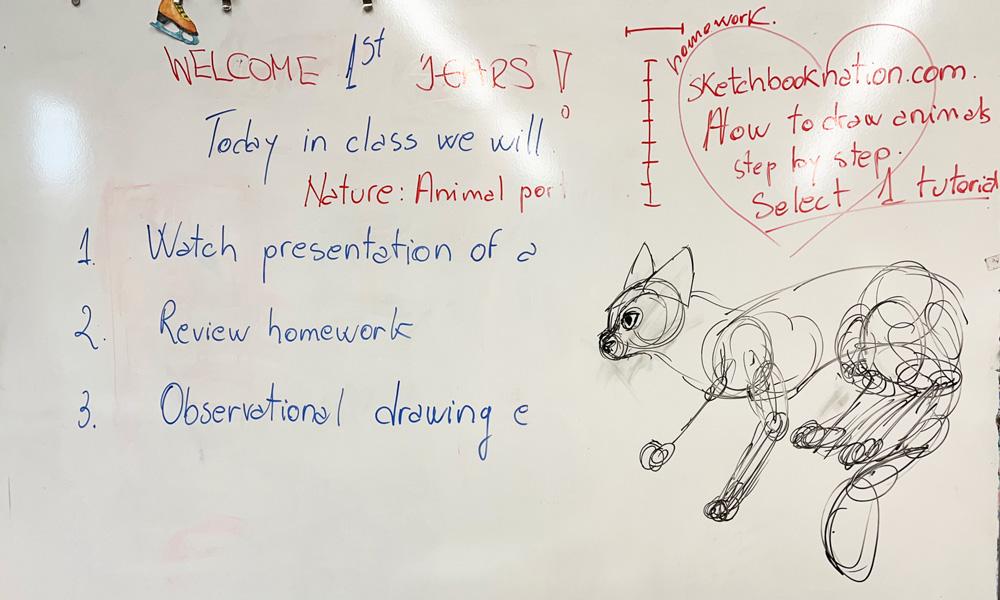 WELCOME 1st YEARS!
Today in class we will
Nature: Animal por
1. Watch presentation of a
2. Review homework
3. Observational drawing e
homework.
sketchbooknation.com.
How to draw animals
step by step.
Select 1 tutorial